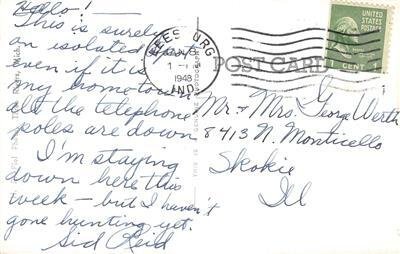 Hello!
This is surely
an isolated
even if it is
my hometown
all the telephone
poles are down
I'm staying
down here this
week – but I haven't
gone hunting yet.
Sid Reid
EESBURG
1948
IND.
UNITED STATES
POSTAGE
1 CENT 1
POST CARD
Mr. & Mrs. George Werth
8413 N. Monticello
Skokie
Ill